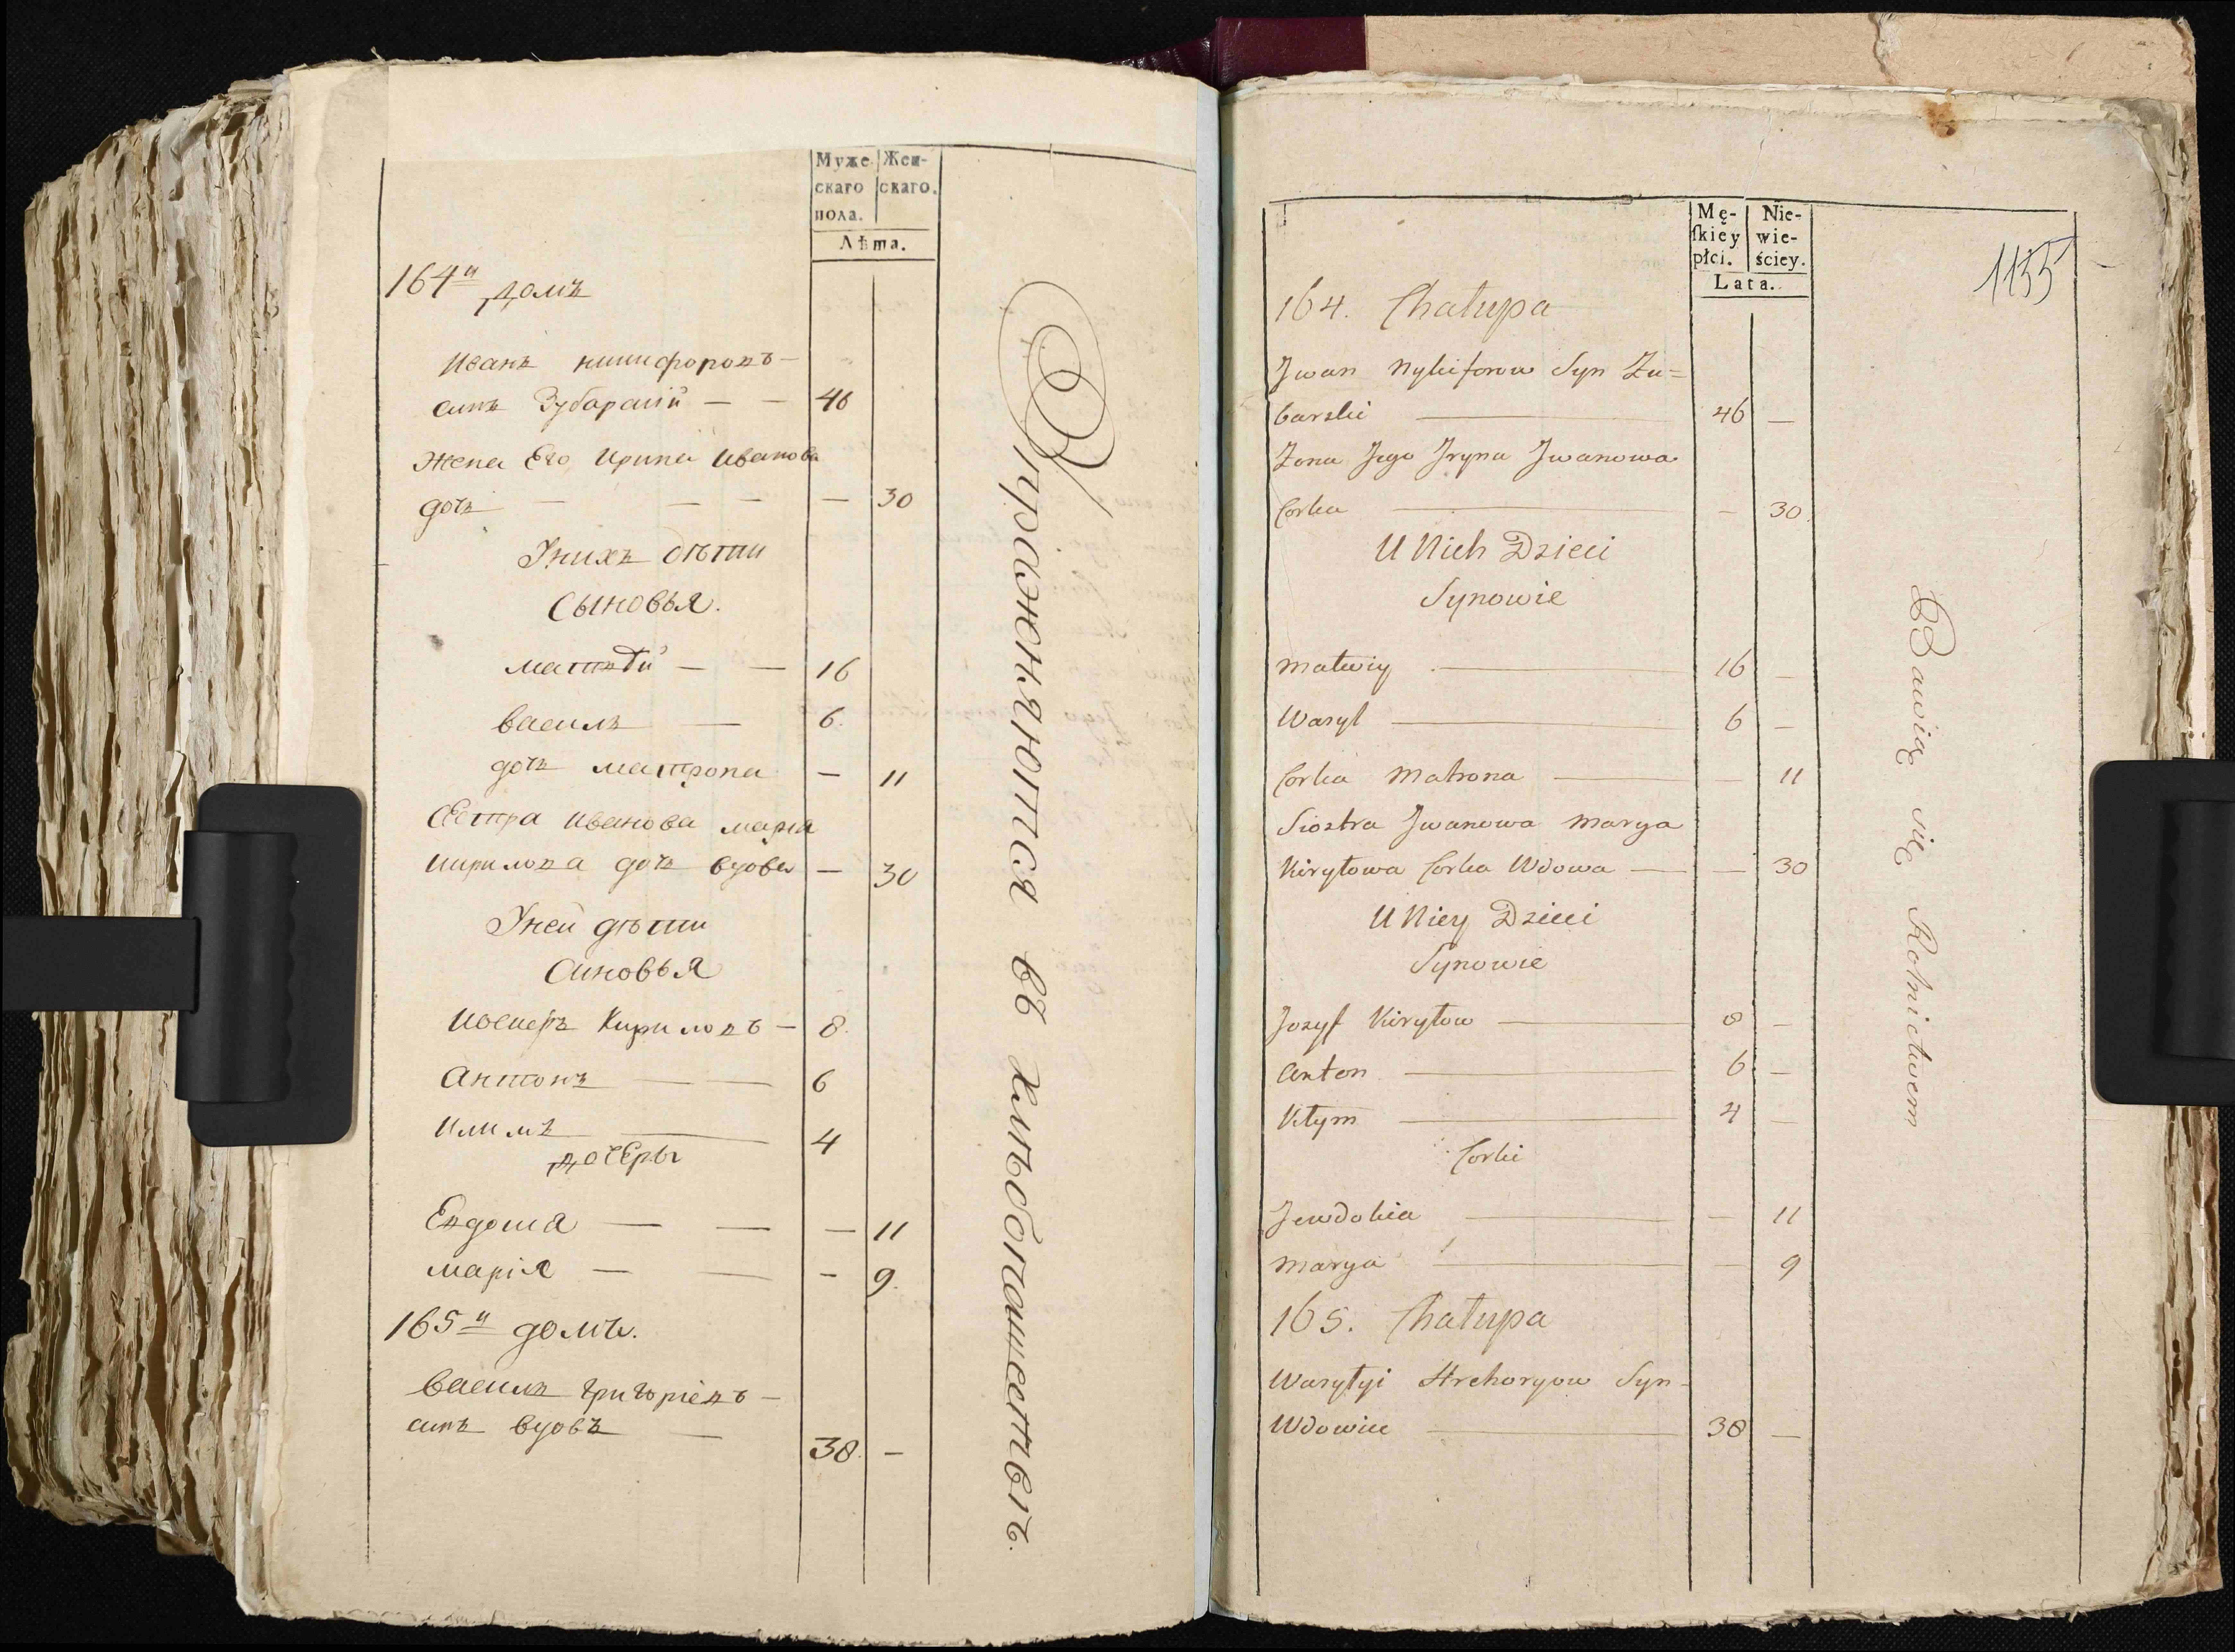 Муже
скаго
пола.
Жен-
скаго.
Лѣта.
164й домъ
Иванъ никифоровъ
синъ Зубарскій — — 46
Жена Его Ирина Иванова
дочъ — — — — 30
Унихъ дѣти
Сыновья.
матвѣй — — 16
василъ — 6.
дочъ матрона — 11
Сестра Иванова марія
кирилова дочъ вдова — 30
Уней дѣти
Синовья
Иосифъ Кириловъ — 8.
Антонъ — — 6
Климъ — 4
дочеры
Евдокія — — — 11
марія — — — 9.
165й домъ.
василъ григоріевъ —
синъ вдовъ — 38. —
Упражняются въ хлѣбопашествѣ.
Mę-
ſkiéy
płci.
Nie-
wie-
ściey.
Lata.
1155
164. Chałupa
Jwan Nykiforow Syn Zu=
barski — 46 —
Zona Jego Jryna Jwanowa
Corka — — 30.
U Nich Dzieci
Synowie
Matwiy — 16 —
Wasyl — 6 —
Corka Matrona — — 11
Siostra Jwanowa Marya
Kiryłowa Corka Wdowa — — 30
U Niey Dzieci
Synowie
Jozyf Kiryłow — 8 —
Anton — 6 —
Kłym — 4 —
Corki
Jewdokia — — 11
Marya — — 9
165. Chałupa
Wasylyi Hrehoryow Syn
Wdowiec — 38 —
Bawią się Rolnictwem